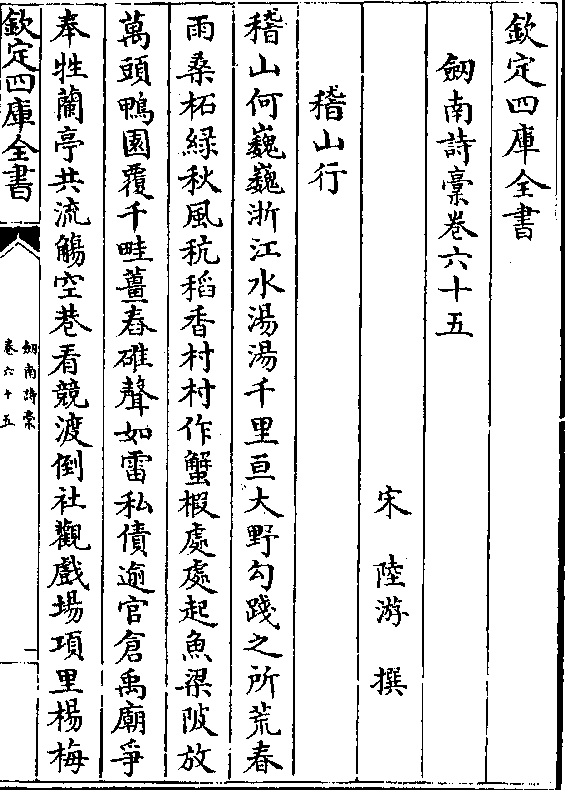 欽定四庫全書
劒南詩稾卷六十五
宋 陸游 撰
稽山行
稽山何巍巍浙江水湯湯千里亘大野勾踐之所荒春
雨桑柘緑秋風秔稻香村村作蟹椵處處起魚梁陂放
萬頭鴨園覆千畦薑舂碓聲如雷私債逾官倉禹廟爭
奉牲蘭亭共流觴空巷看競渡倒社觀戲場項里楊梅
欽定四庫全書
劒南詩稾
卷六十五
一